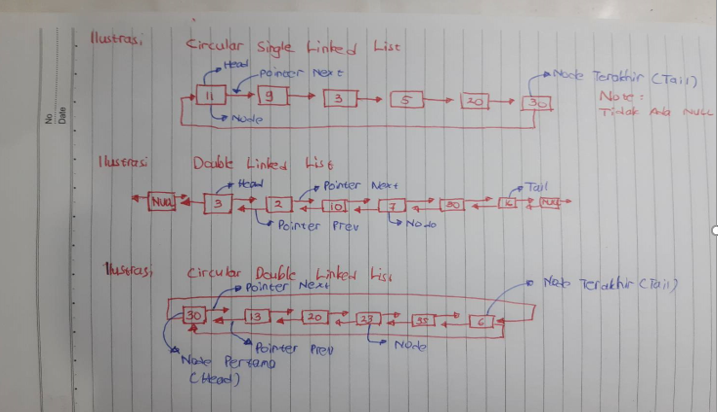 No
Date
Ilustrasi Circular Single Linked List
Head
Pointer Next
Node Terakhir (Tail)
11 9 3 5 20 30
Note:
Tidak Ada NULL
Node
Ilustrasi Double Linked List
Head
Pointer Next
Tail
NULL 3 2 10 7 80 16 NULL
Pointer Prev
Node
Ilustrasi Circular Double Linked List
Pointer Next
Node Terakhir (Tail)
30 13 20 23 35 6
Pointer Prev
Node
Node Pertama
(Head)